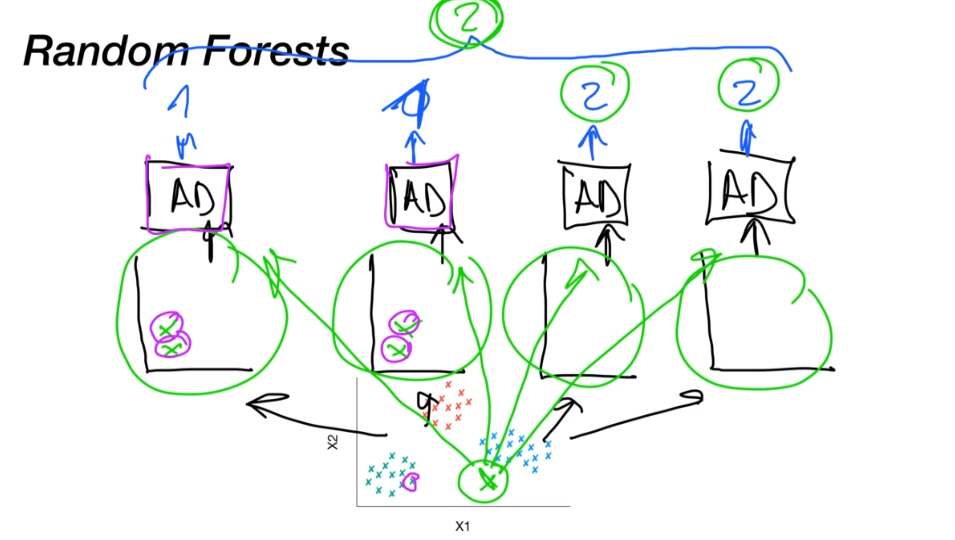 2
Random Forests
1 1 2 2
AD AD AD AD
X2
X1